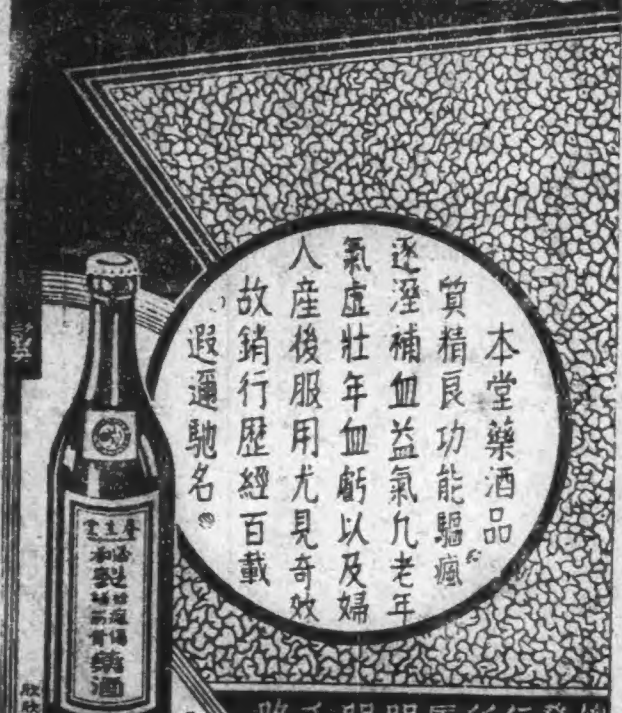 本堂藥酒品
質精良功能驅瘋
逐溼補血益氣凢老年
氣虛壯年血虧以及婦
人產後服用尤見奇效
故銷行歷經百載
遐邇馳名
藥酒